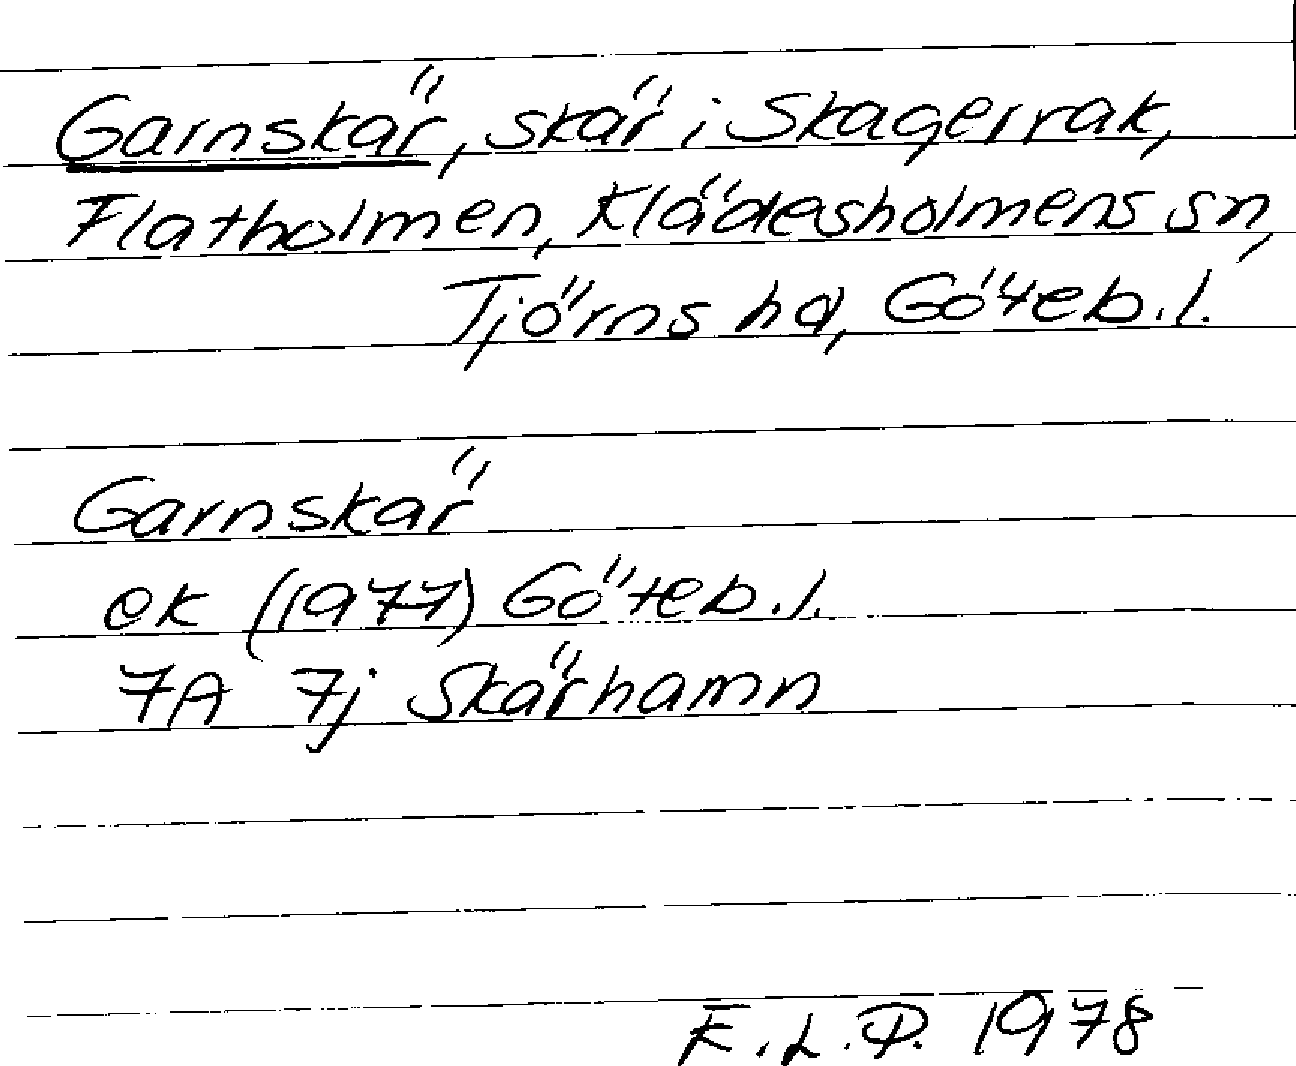 Garnskär, skär i Skagerrak,
Flatholmen, Klädesholmens sn,
Tjörns hd, Göteb.l.
Garnskär
ek (1977) Göteb.l.
7A 7j Skärhamn
E.L.P. 1978